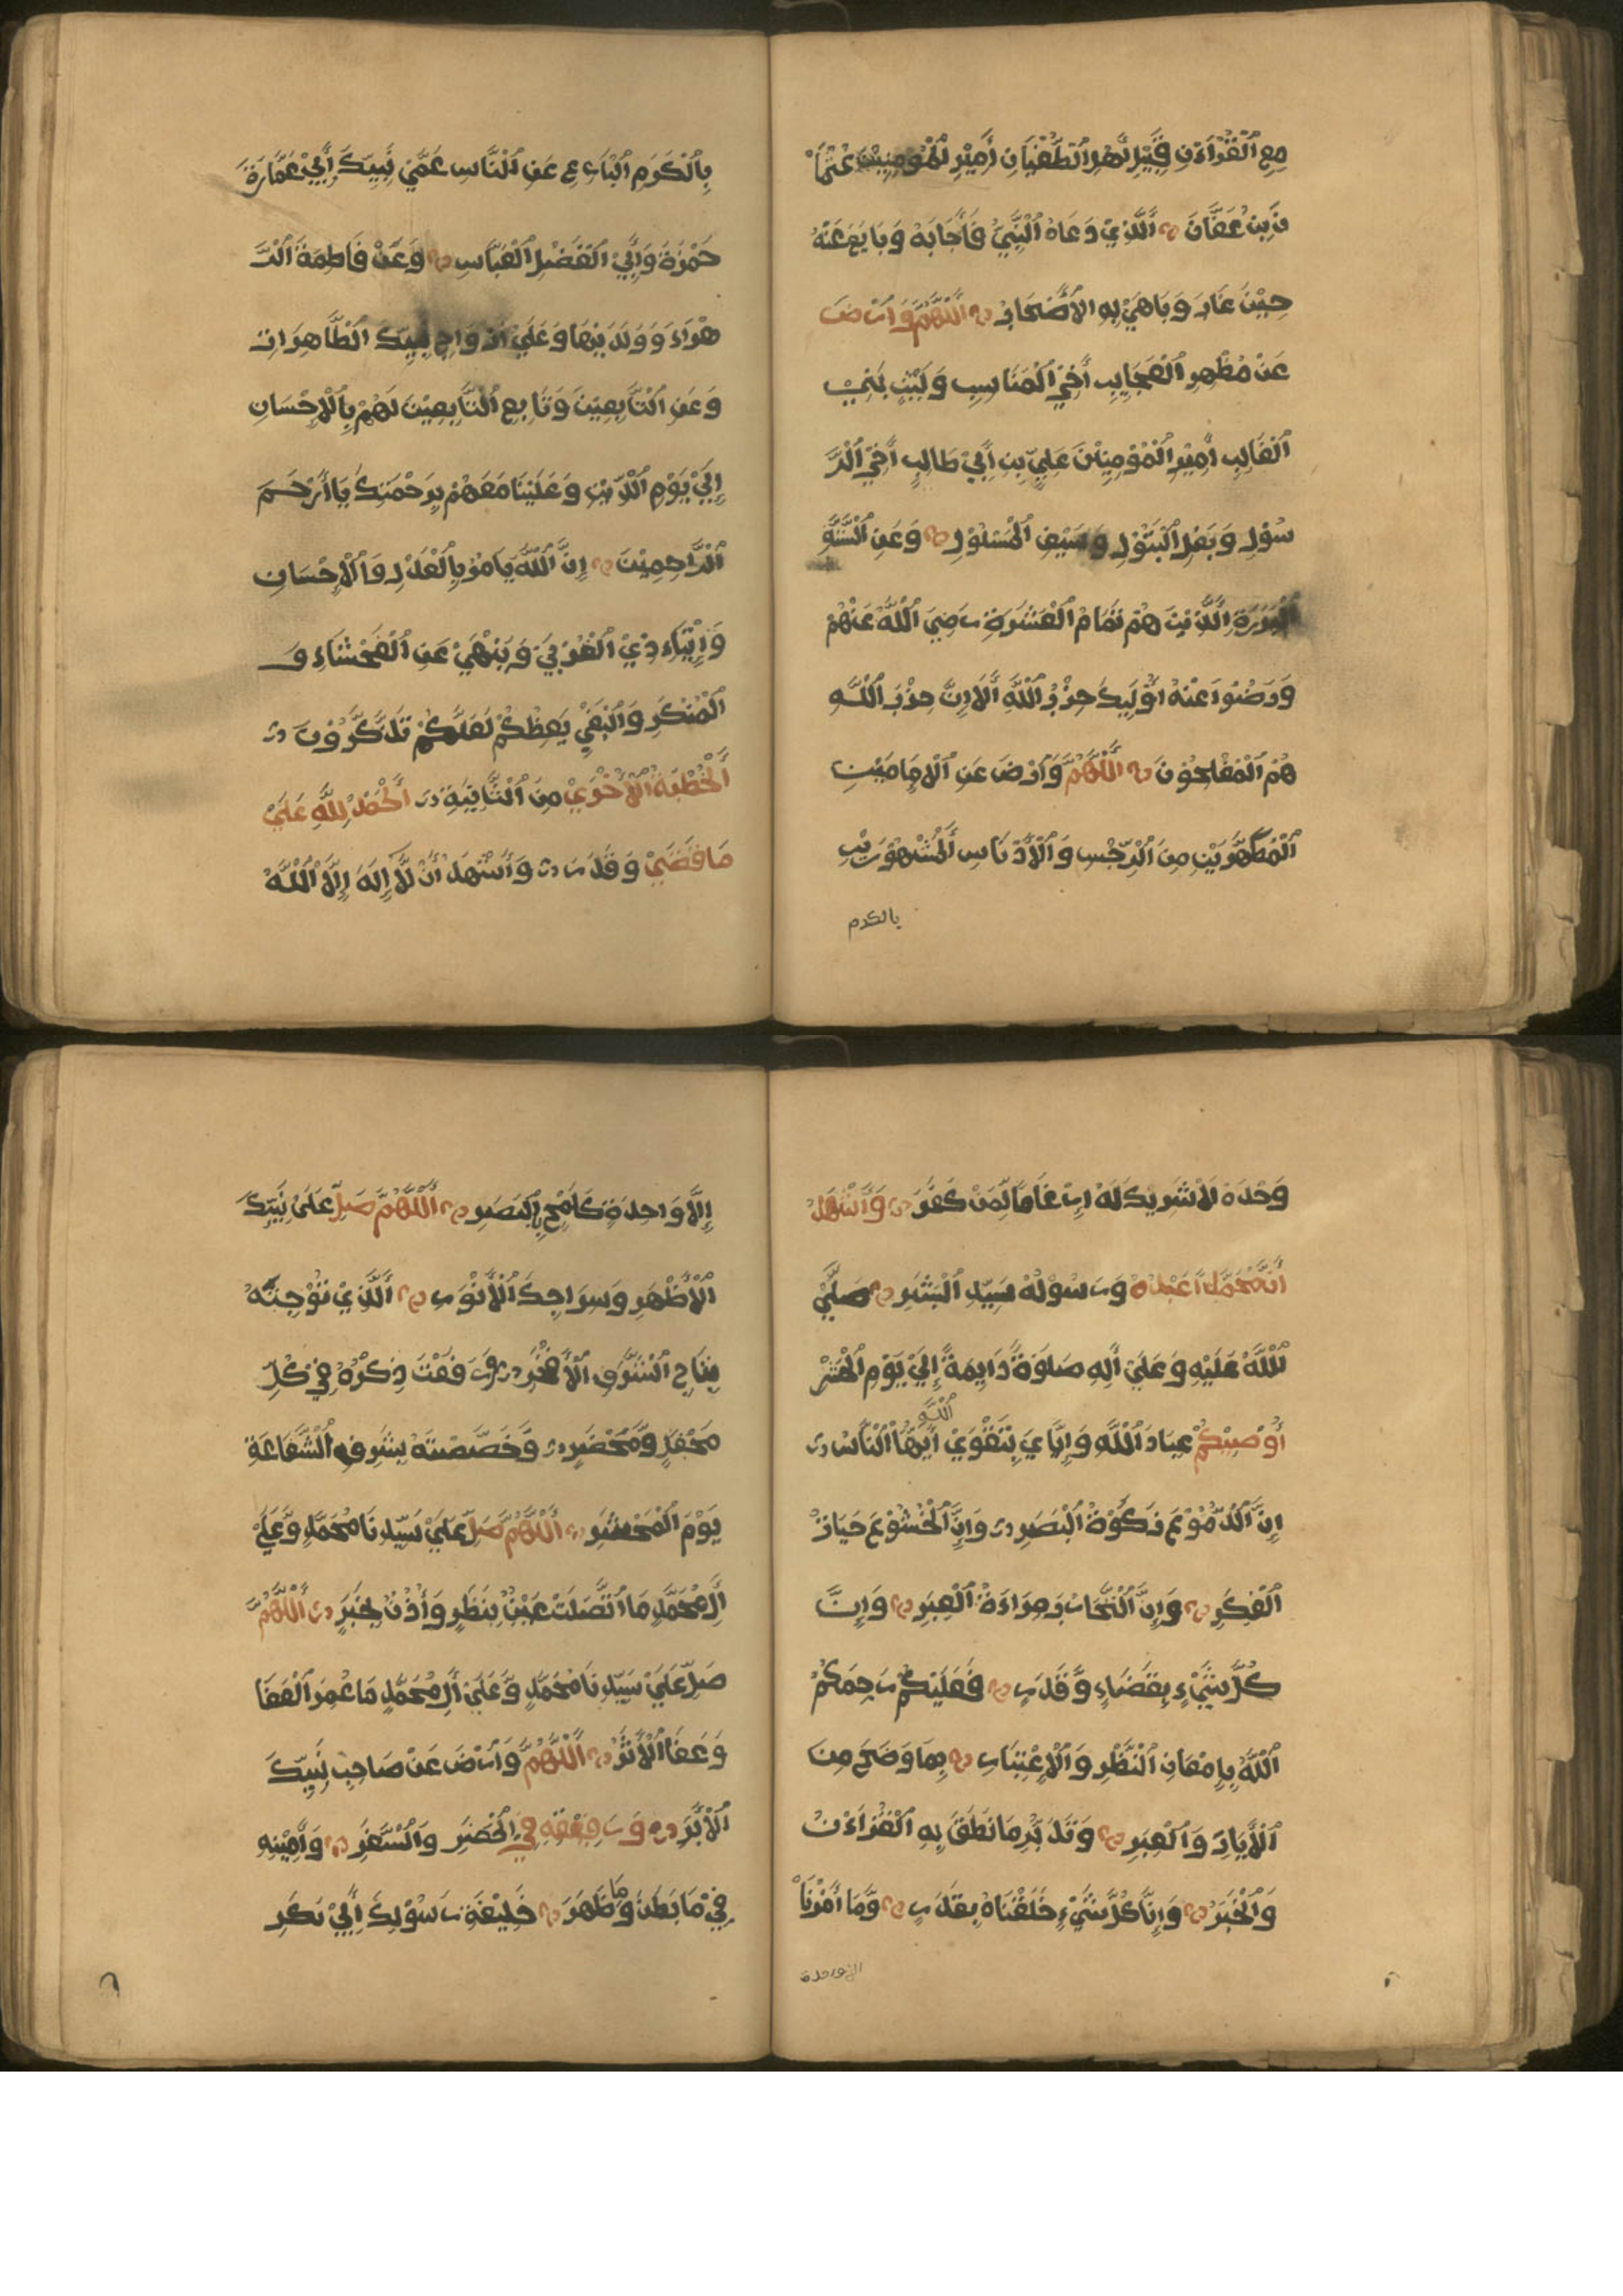 مِعِ ٱلْقُرْآنِ قَتِيْلِ أَهْلِ ٱلطُّغْيَانِ أَمِيْرِ ٱلْمُؤْمِنِيْنَ عُثْمَا
نَ بِنْ عَفَّانَ ۞ أَلَّذِيْ دَعَاهُ ٱلنَّبِيُّ فَأَجَابَهُ وَبَايَعَ عَنْهُ
حِيْنَ غَابَ وَبَاهَيْ بِهِ الأَصْحَابُ ۞ أَللّٰهُمَّ وَارْضَ
عَنْ مُظْهِرِ ٱلْعَجَايِبِ أَخِيْ ٱلْمَنَاسِبِ وَلَيْثِ بَنِيْ
ٱلْغَالِبِ أَمِيْرِ ٱلْمُؤْمِنِيْنَ عَلِيِّ بِنِ أَبِيْ طَالِبٍ أَخِيْ ٱلرَّ
سُوْلِ وَبَعْلِ ٱلْبَتُوْلِ وَسَيْفِ ٱلْمَسْلُوْلِ ۞ وَعَنِ ٱلسِّتَّةِ
ٱلْبَرَرَةِ ٱلَّذِيْنَ هُمْ تَمَامُ ٱلْعَشَرَةِ رَضِيَ ٱللّٰهُ عَنْهُمْ
وَرَضُوا عَنْهُ أُوْلَيِكَ حِزْبُ ٱللّٰهِ أَلَا إِنَّ حِزْبَ ٱللّٰهِ
هُمُ ٱلْمُفْلِحُوْنَ ۞ أَللّٰهُمَّ وَارْضَ عَنِ ٱلْإِمَامَيْنِ
ٱلْمُطَهَّرَيْنِ مِنَ ٱلرِّجْسِ وَٱلْأَدْنَاسِ ٱلْمَشْهُوْرَيْنِ
بالكرم
بِٱلْكَرَمِ ٱلْبَاءِعِ عَنِ ٱلنَّاسِ عَمَّيْ نَبِيِّكَ أَبِيْ عَمَّارَةَ
حَمْزَةَ وَأَبِيْ ٱلْفَضْلِ ٱلْعَبَّاسِ ۞ وَعَنْ فَاطِمَةَ ٱلزَّ
هْرَاءَ وَوَلَدَيْهَا وَعَلَيْ أَزْوَاجِ نَبِيِّكَ ٱلطَّاهِرَاتِ
وَعَنِ ٱلتَّابِعِيْنَ وَتَابِعِ ٱلتَّابِعِيْنَ لَهُمْ بِٱلْإِحْسَانِ
إِلَيْ يَوْمِ ٱلدِّيْنِ وَعَلَيْنَا مَعَهُمْ بِرَحْمَتِكَ يَا أَرْحَمَ
ٱلرَّاحِمِيْنَ ۞ إِنَّ ٱللّٰهَ يَامُرُ بِٱلْعَدْلِ وَٱلْإِحْسَانِ
وَإِيْتَاءِ ذِيْ ٱلْقُرْبَيْ وَيَنْهَيْ عَنِ ٱلْفَحْشَاءِ وَ
ٱلْمُنْكَرِ وَٱلْبَغْيِ يَعِظُكُمْ لَعَلَّكُمْ تَذَكَّرُوْنَ ۞
أَلْخُطْبَةُ ٱلْأُخْرَيْ مِنَ ٱلثَّانِيَةِ ۞ أَلْحَمْدُ لِلّٰهِ عَلَيْ
مَا قَضَيْ وَقَدَرَ ۞ وَأَشْهَدُ أَنْ لَّا إِلٰهَ إِلَّا ٱللّٰهُ
وَحْدَهُ لَا شَرِيْكَ لَهُ إِرْغَامًا لِمَنْ كَفَرَ ۞ وَأَشْهَدُ
أَنَّ مُحَمَّدًا عَبْدُهُ وَرَسُوْلُهُ سَيِّدِ ٱلْبَشَرِ ۞ صَلَّيْ
ٱللّٰهُ عَلَيْهِ وَعَلَيْ أٰلِهِ صَلٰوةً دَايِمَةً إِلَيْ يَوْمِ ٱلْحَشْرِ
أُوْصِيْكُمْ عِبَادَ ٱللّٰهِ وَإِيَّايَ بِتَقْوَيْ ٱللّٰهِ أَيُّهَا ٱلنَّاسُ ۞
إِنَّ ٱلدُّمُوْعَ زَكٰوةُ ٱلْبَصَرِ ۞ وَإِنَّ ٱلْخُشُوْعَ حَيَاةُ
ٱلْفِكَرِ ۞ وَإِنَّ ٱلتَّجَارِبَ مِرَاءَةُ ٱلْعِبَرِ ۞ وَإِنَّ
كُلَّ شَيْءٍ بِقَضَاءٍ وَّقَدَرٍ ۞ فَعَلَيْكُمْ رَحِمَكُمُ
ٱللّٰهُ بِإِمْعَانِ ٱلنَّظْرِ وَٱلْإِعْتِبَارِ ۞ بِمَا وَضَحَ مِنَ
ٱلْأٰيَاتِ وَٱلْعِبَرِ ۞ وَتَدَبُّرِ مَا نَطَقَ بِهِ ٱلْقُرْءٰنُ
وَٱلْخَبَرُ ۞ وَإِنَّا كُلَّ شَيْءٍ خَلَقْنَاهُ بِقَدَرٍ ۞ وَّمَا أَمْرُنَا
الا واحدة
إِلَّا وَاحِدَةٌ كَلَمْحٍ بِٱلْبَصَرِ ۞ أَللّٰهُمَّ صَلِّ عَلَيْ نَبِيِّكَ
ٱلْأَطْهَرِ وَسِرَاجِكَ ٱلْأَنْوَرِ ۞ أَلَّذِيْ تَوَّجْتَهُ
بِتَاجِ ٱلشَّرَفِ ٱلْأَفْخَرِ ۞ وَرَفَعْتَ ذِكْرَهُ فِيْ كُلِّ
مَحْفَلٍ وَّمَحْضَرٍ ۞ وَّخَصَّصْتَهُ بِشَرَفِ ٱلشَّفَاعَةِ
يَوْمَ ٱلْمَحْشَرِ ۞ أَللّٰهُمَّ صَلِّ عَلَيْ سَيِّدِنَا مُحَمَّدٍ وَّعَلَيْ
أٰلِ مُحَمَّدٍ مَا ٱتَّصَلَتْ عَيْنٌ بِنَظَرٍ وَأُذُنٌ بِخَبَرٍ ۞ أَللّٰهُمَّ
صَلِّ عَلَيْ سَيِّدِنَا مُحَمَّدٍ وَّعَلَيْ أٰلِ مُحَمَّدٍ مَا عُمِرَ ٱلْعَفَا
وَعَفَا ٱلْأَثَرُ ۞ أَللّٰهُمَّ وَارْضَ عَنْ صَاحِبِ نَبِيِّكَ
ٱلْأَبَرِّ ۞ وَرَفِيْقِهِ فِيْ ٱلْحَضَرِ وَٱلسَّفَرِ ۞ وَأَمِيْنِهِ
فِيْ مَا بَطَنَ وَمَا ظَهَرَ ۞ خَلِيْفَةِ رَسُوْلِكَ أَبِيْ بَكْرٍ